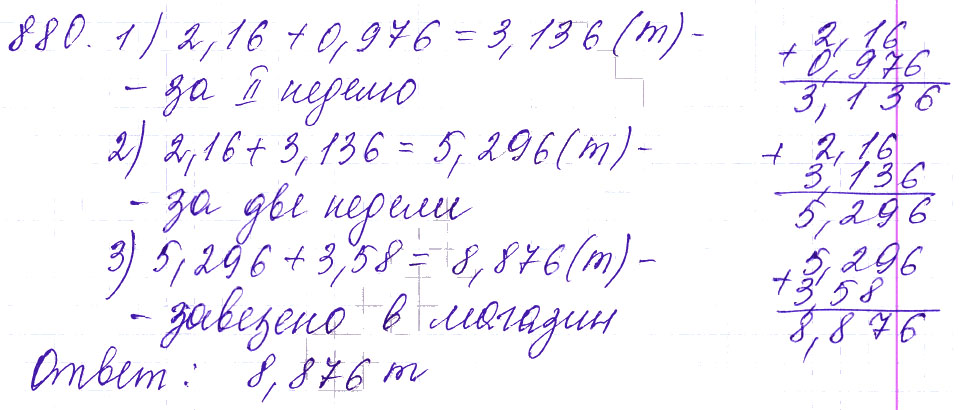 880. 1) 2,16 + 0,976 = 3,136 (т) -
- за II неделю
2) 2,16 + 3,136 = 5,296 (т) -
- за две недели
3) 5,296 + 3,58 = 8,876 (т) -
- завезено в магазин
Ответ: 8,876 т
+ 2,16
0,976
3,136
+ 2,16
3,136
5,296
+ 5,296
3,58
8,876